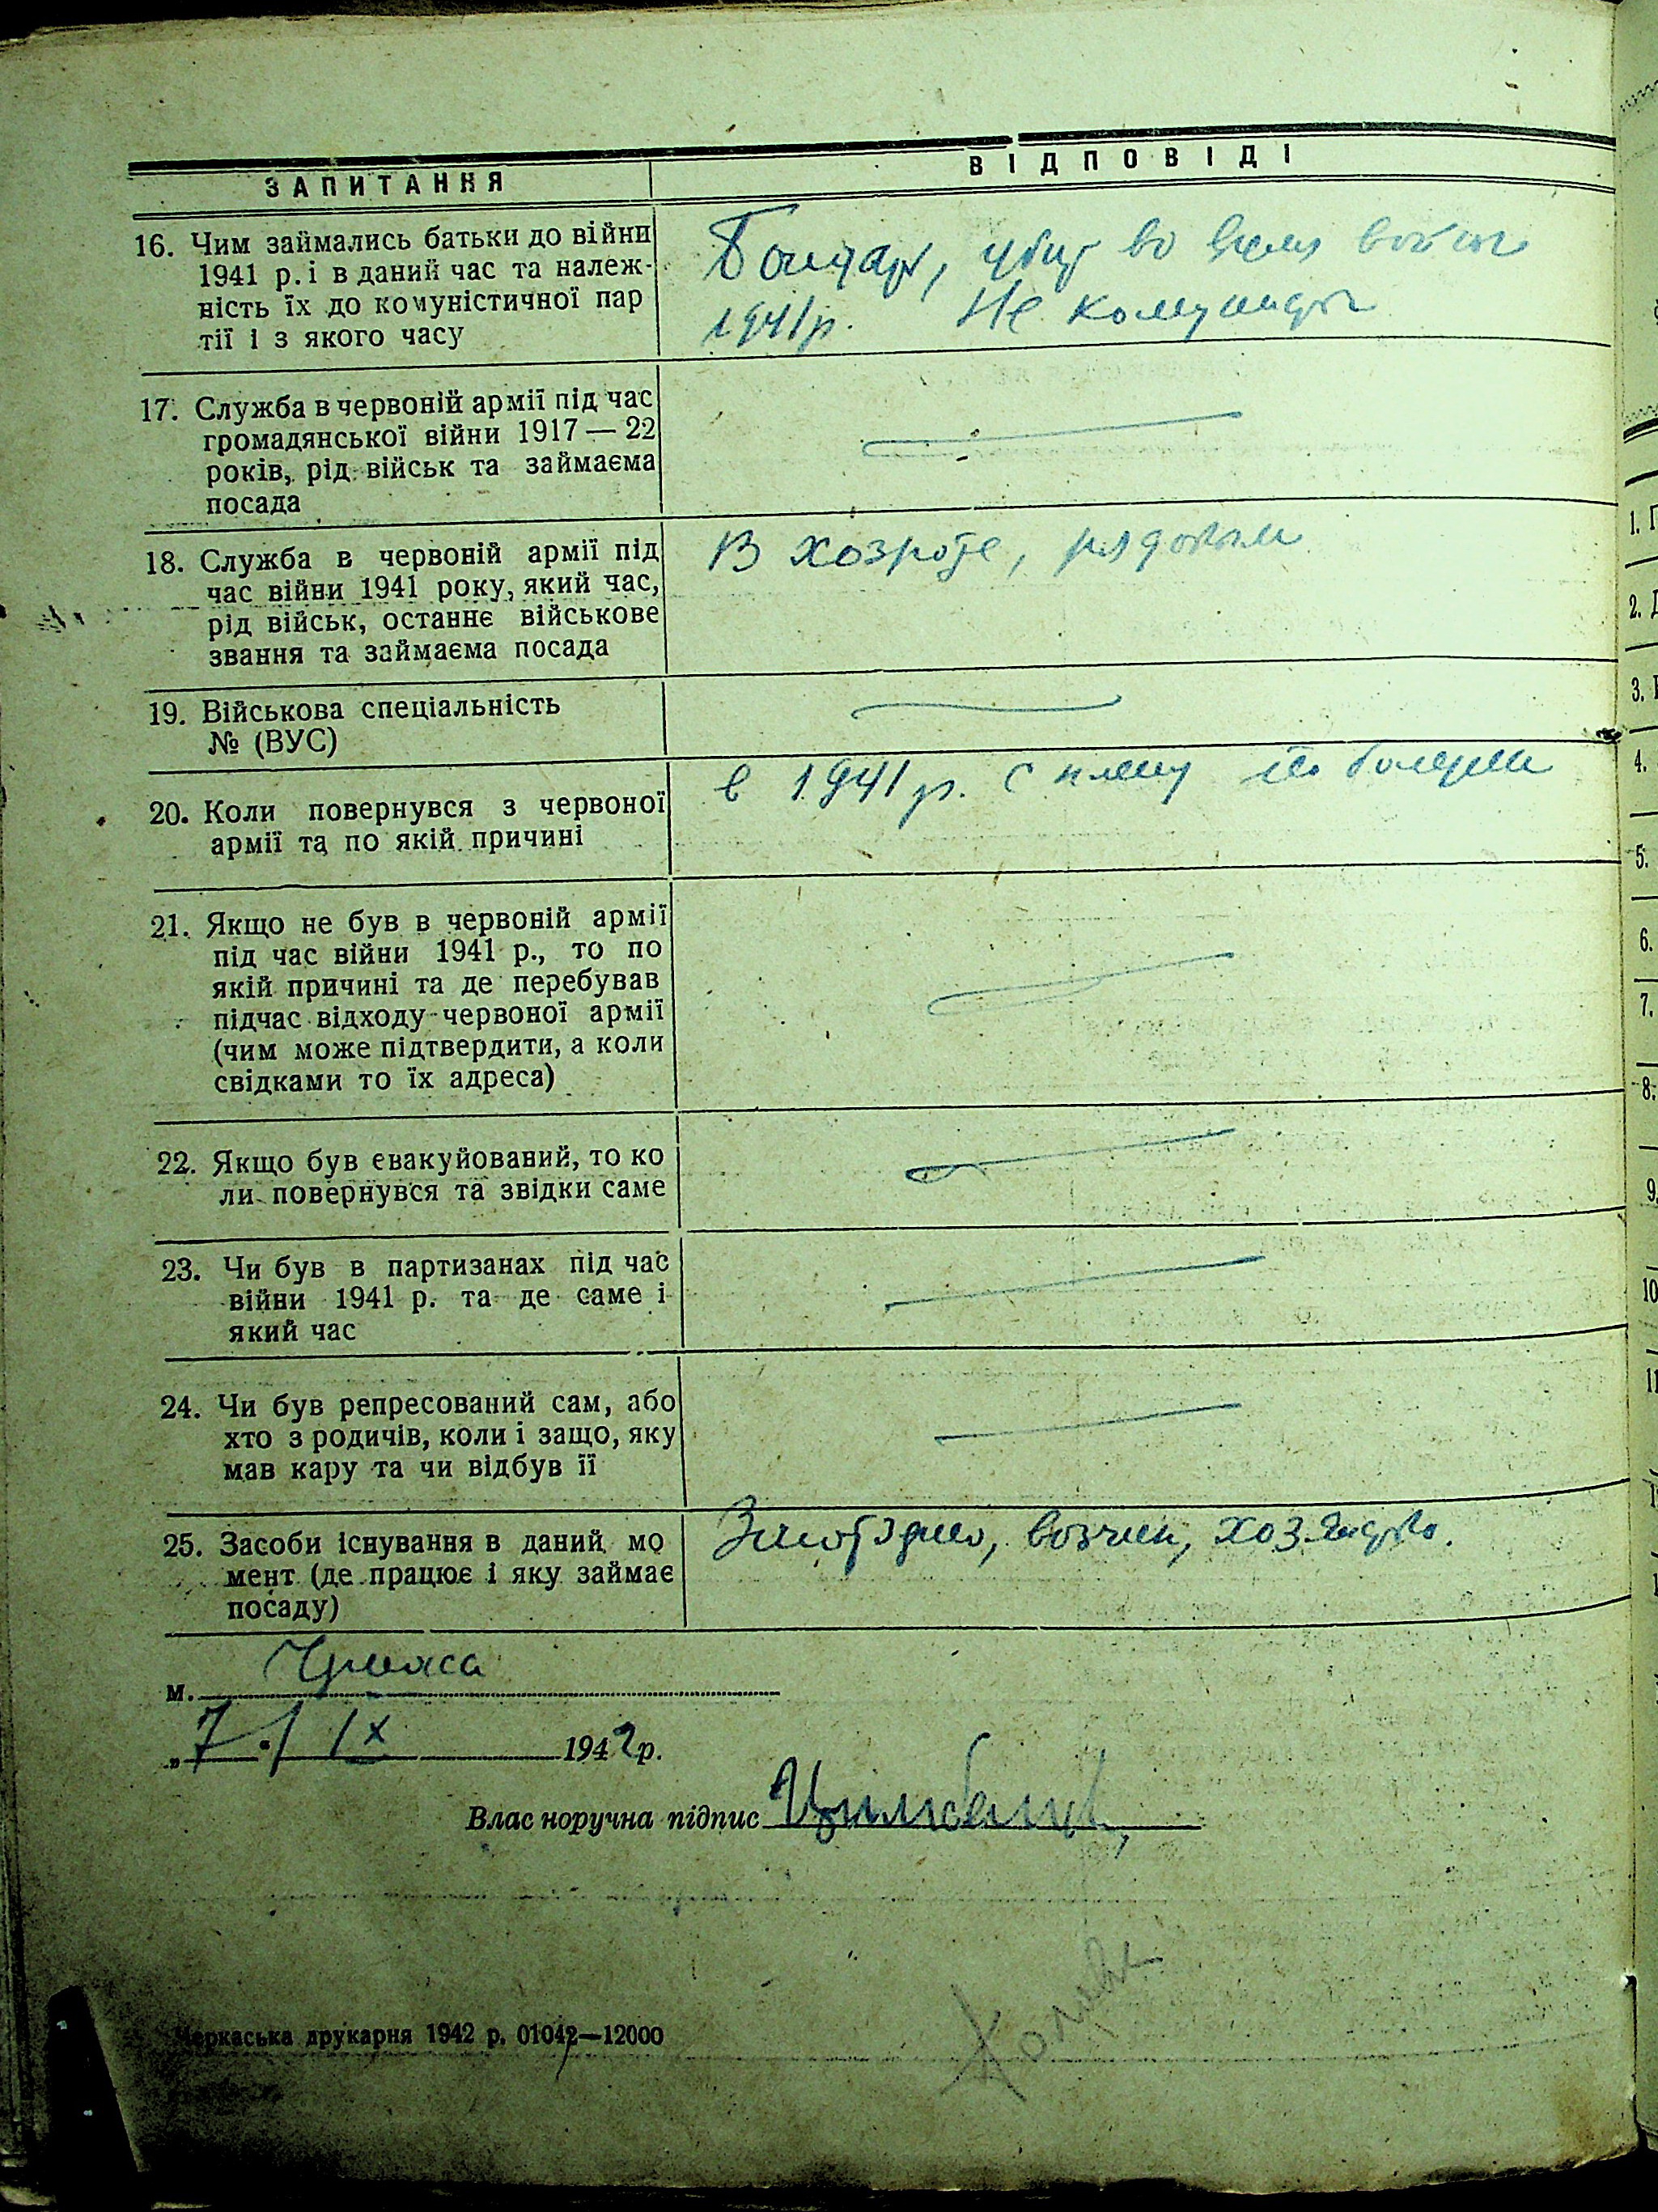 ЗАПИТАННЯ
ВІДПОВІДІ
16. Чим займались батьки до війни
1941 р. і в даний час та належ-
ність їх до комуністичної пар
тії і з якого часу
Бондарь, убит во время войны
1941 р. Не комунисты
17. Служба в червоній армії під час
громадянської війни 1917 — 22
років, рід військ та займаєма
посада
18. Служба в червоній армії під
час війни 1941 року, який час,
рід військ, останнє військове
звання та займаєма посада
В хозроте, рядовым
19. Військова спеціальність
№ (ВУС)
20. Коли повернувся з червоної
армії та по якій причині
в 1941 р. с плену по болезни
21. Якщо не був в червоній армії
під час війни 1941 р., то по
якій причині та де перебував
підчас відходу червоної армії
(чим може підтвердити, а коли
свідками то їх адреса)
22. Якщо був евакуйований, то ко
ли повернувся та звідки саме
23. Чи був в партизанах під час
війни 1941 р. та де саме і
який час
24. Чи був репресований сам, або
хто з родичів, коли і защо, яку
мав кару та чи відбув її
25. Засоби існування в даний мо
мент (де працює і яку займає
посаду)
возчик,
м. Черкаси
„7" IX 1942 р.
Власноручна підпис
Черкаська друкарня 1942 р. 01042—12000